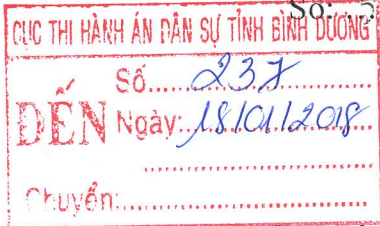 Số: ...
CỤC THI HÀNH ÁN DÂN SỰ TỈNH BÌNH DƯƠNG
ĐẾN
Số.....237
Ngày:..18/01/2018
Chuyển:..............